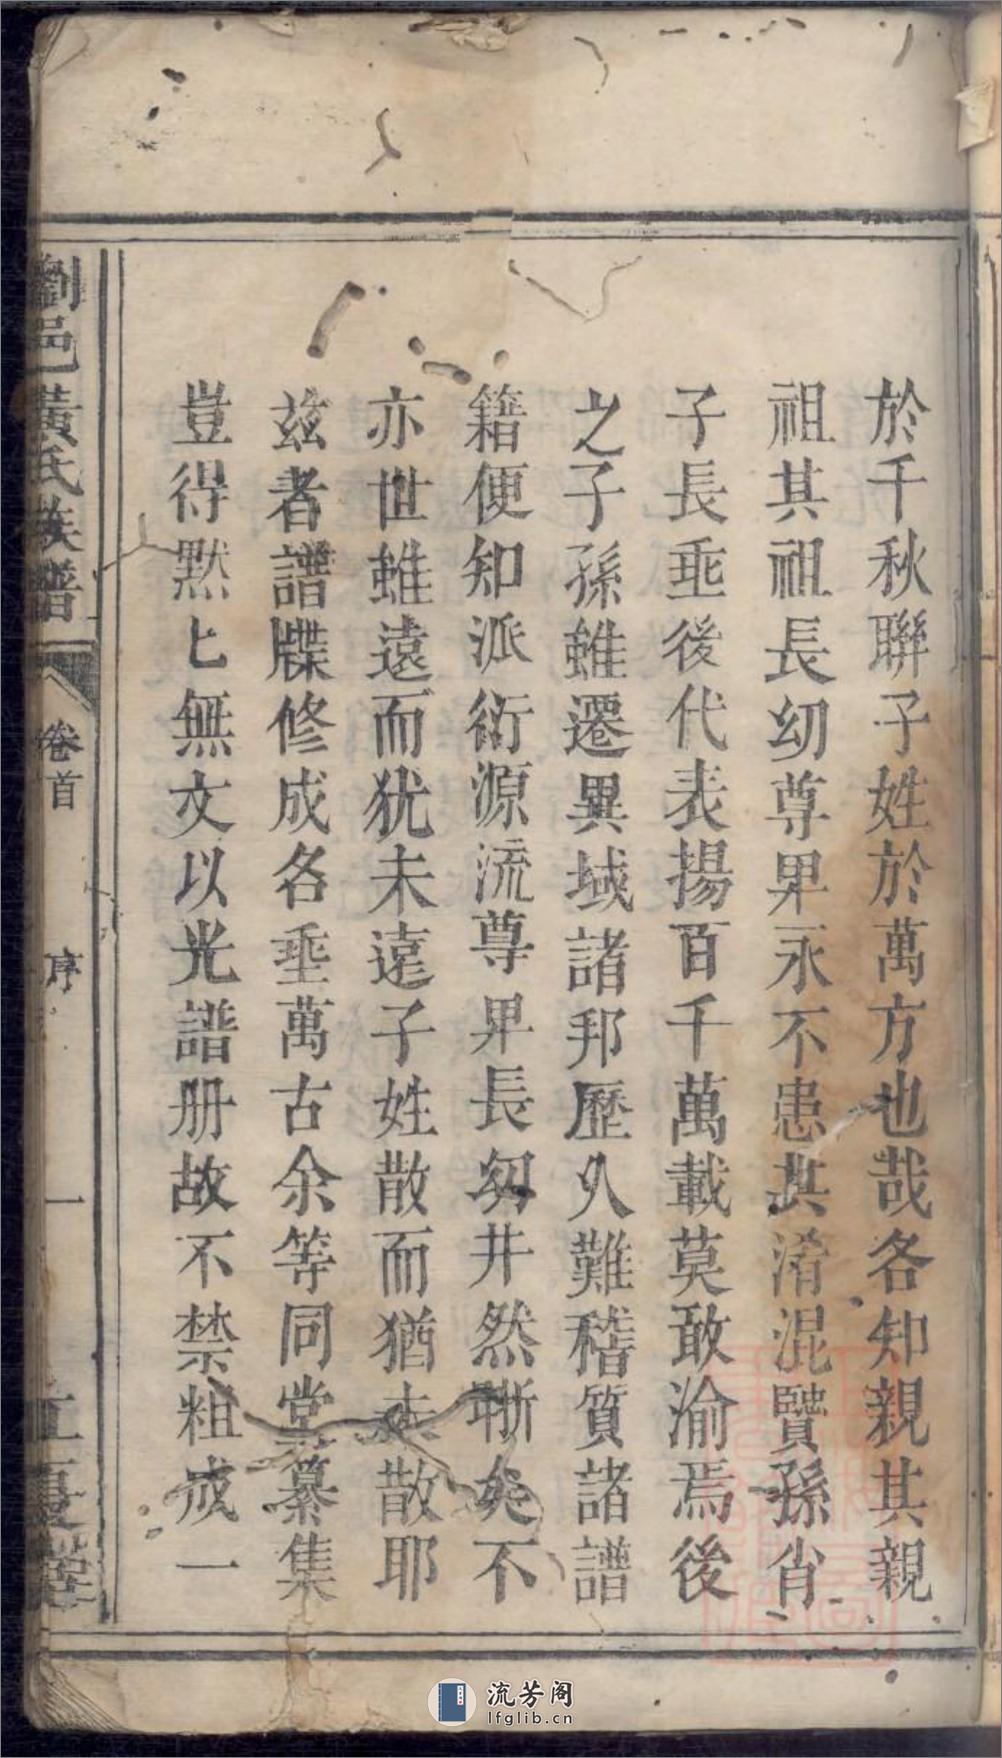 於千秋聯子姓於萬方也哉各知親其親
祖其祖長幼尊卑永不患其淆混賢孫肖
子長垂後代表揚百千萬載莫敢渝焉後
之子孫雖遷異域諸邦歷久難稽質諸譜
籍便知派衍源流尊卑長幼井然晰矣不
亦世雖遠而犹未遠子姓散而猶未散耶
茲者譜牒修成各垂萬古余等同堂纂集
豈得默匕無文以光譜册故不禁粗成一
劉邑黃氏族譜
卷首
序
一
流芳阁
lfglib.cn